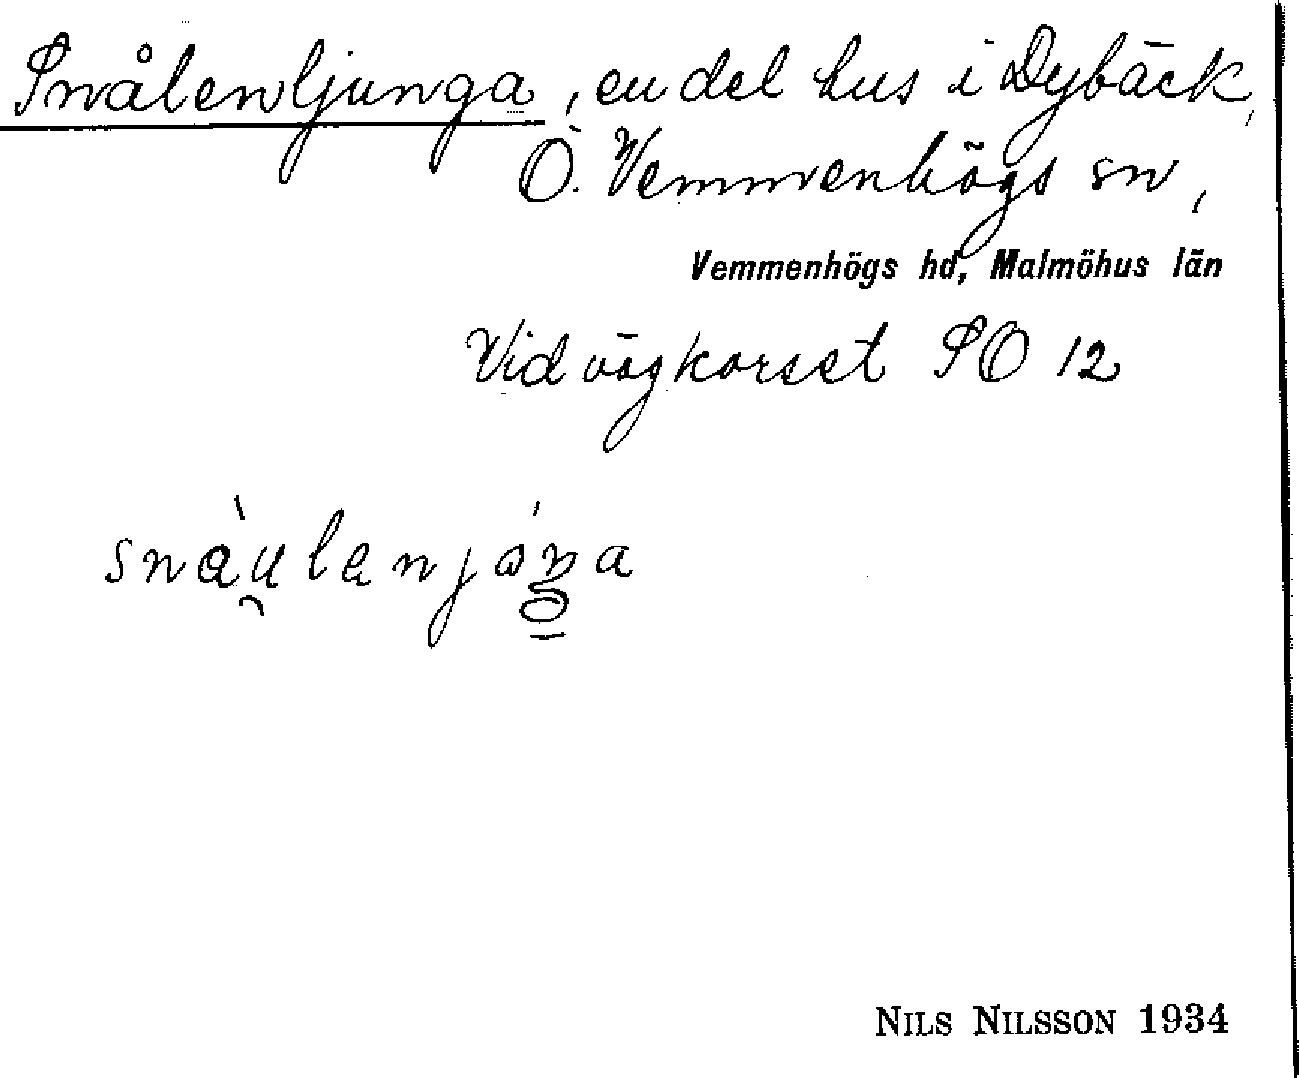 Snålenljunga, en del hus i Dybäck,
Ö. Vemmenhögs sn,
Vemmenhögs hd, Malmöhus län
Vid vägkorset SO 12
NILS NILSSON 1934